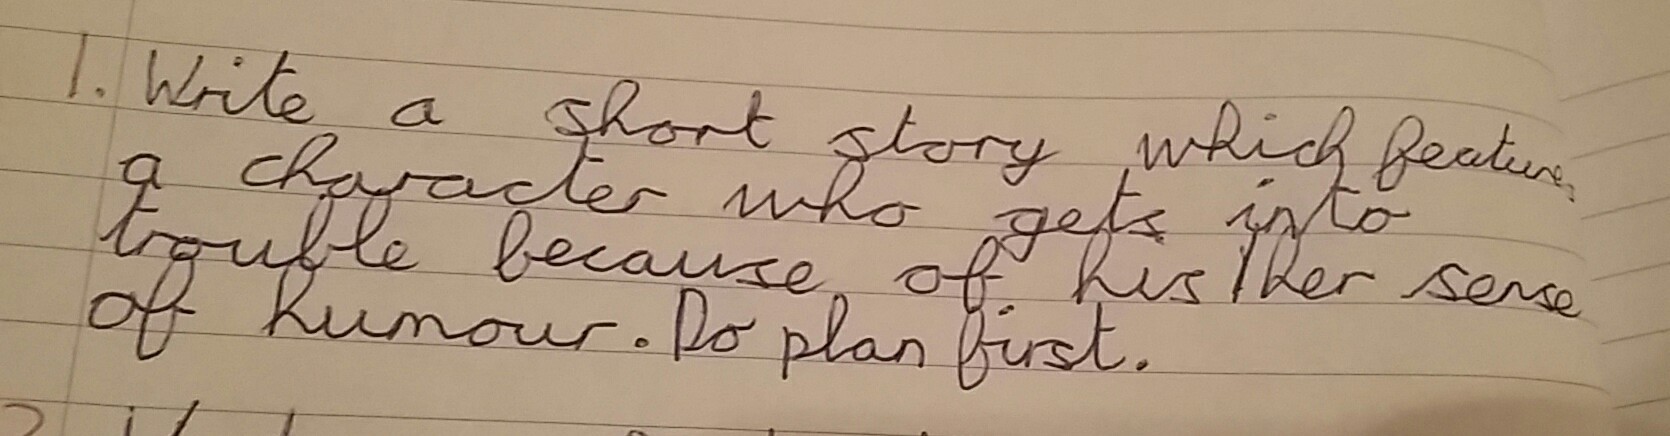 1. Write a short story which features
a character who gets into
trouble because of his/her sense
of humour. Do plan first.